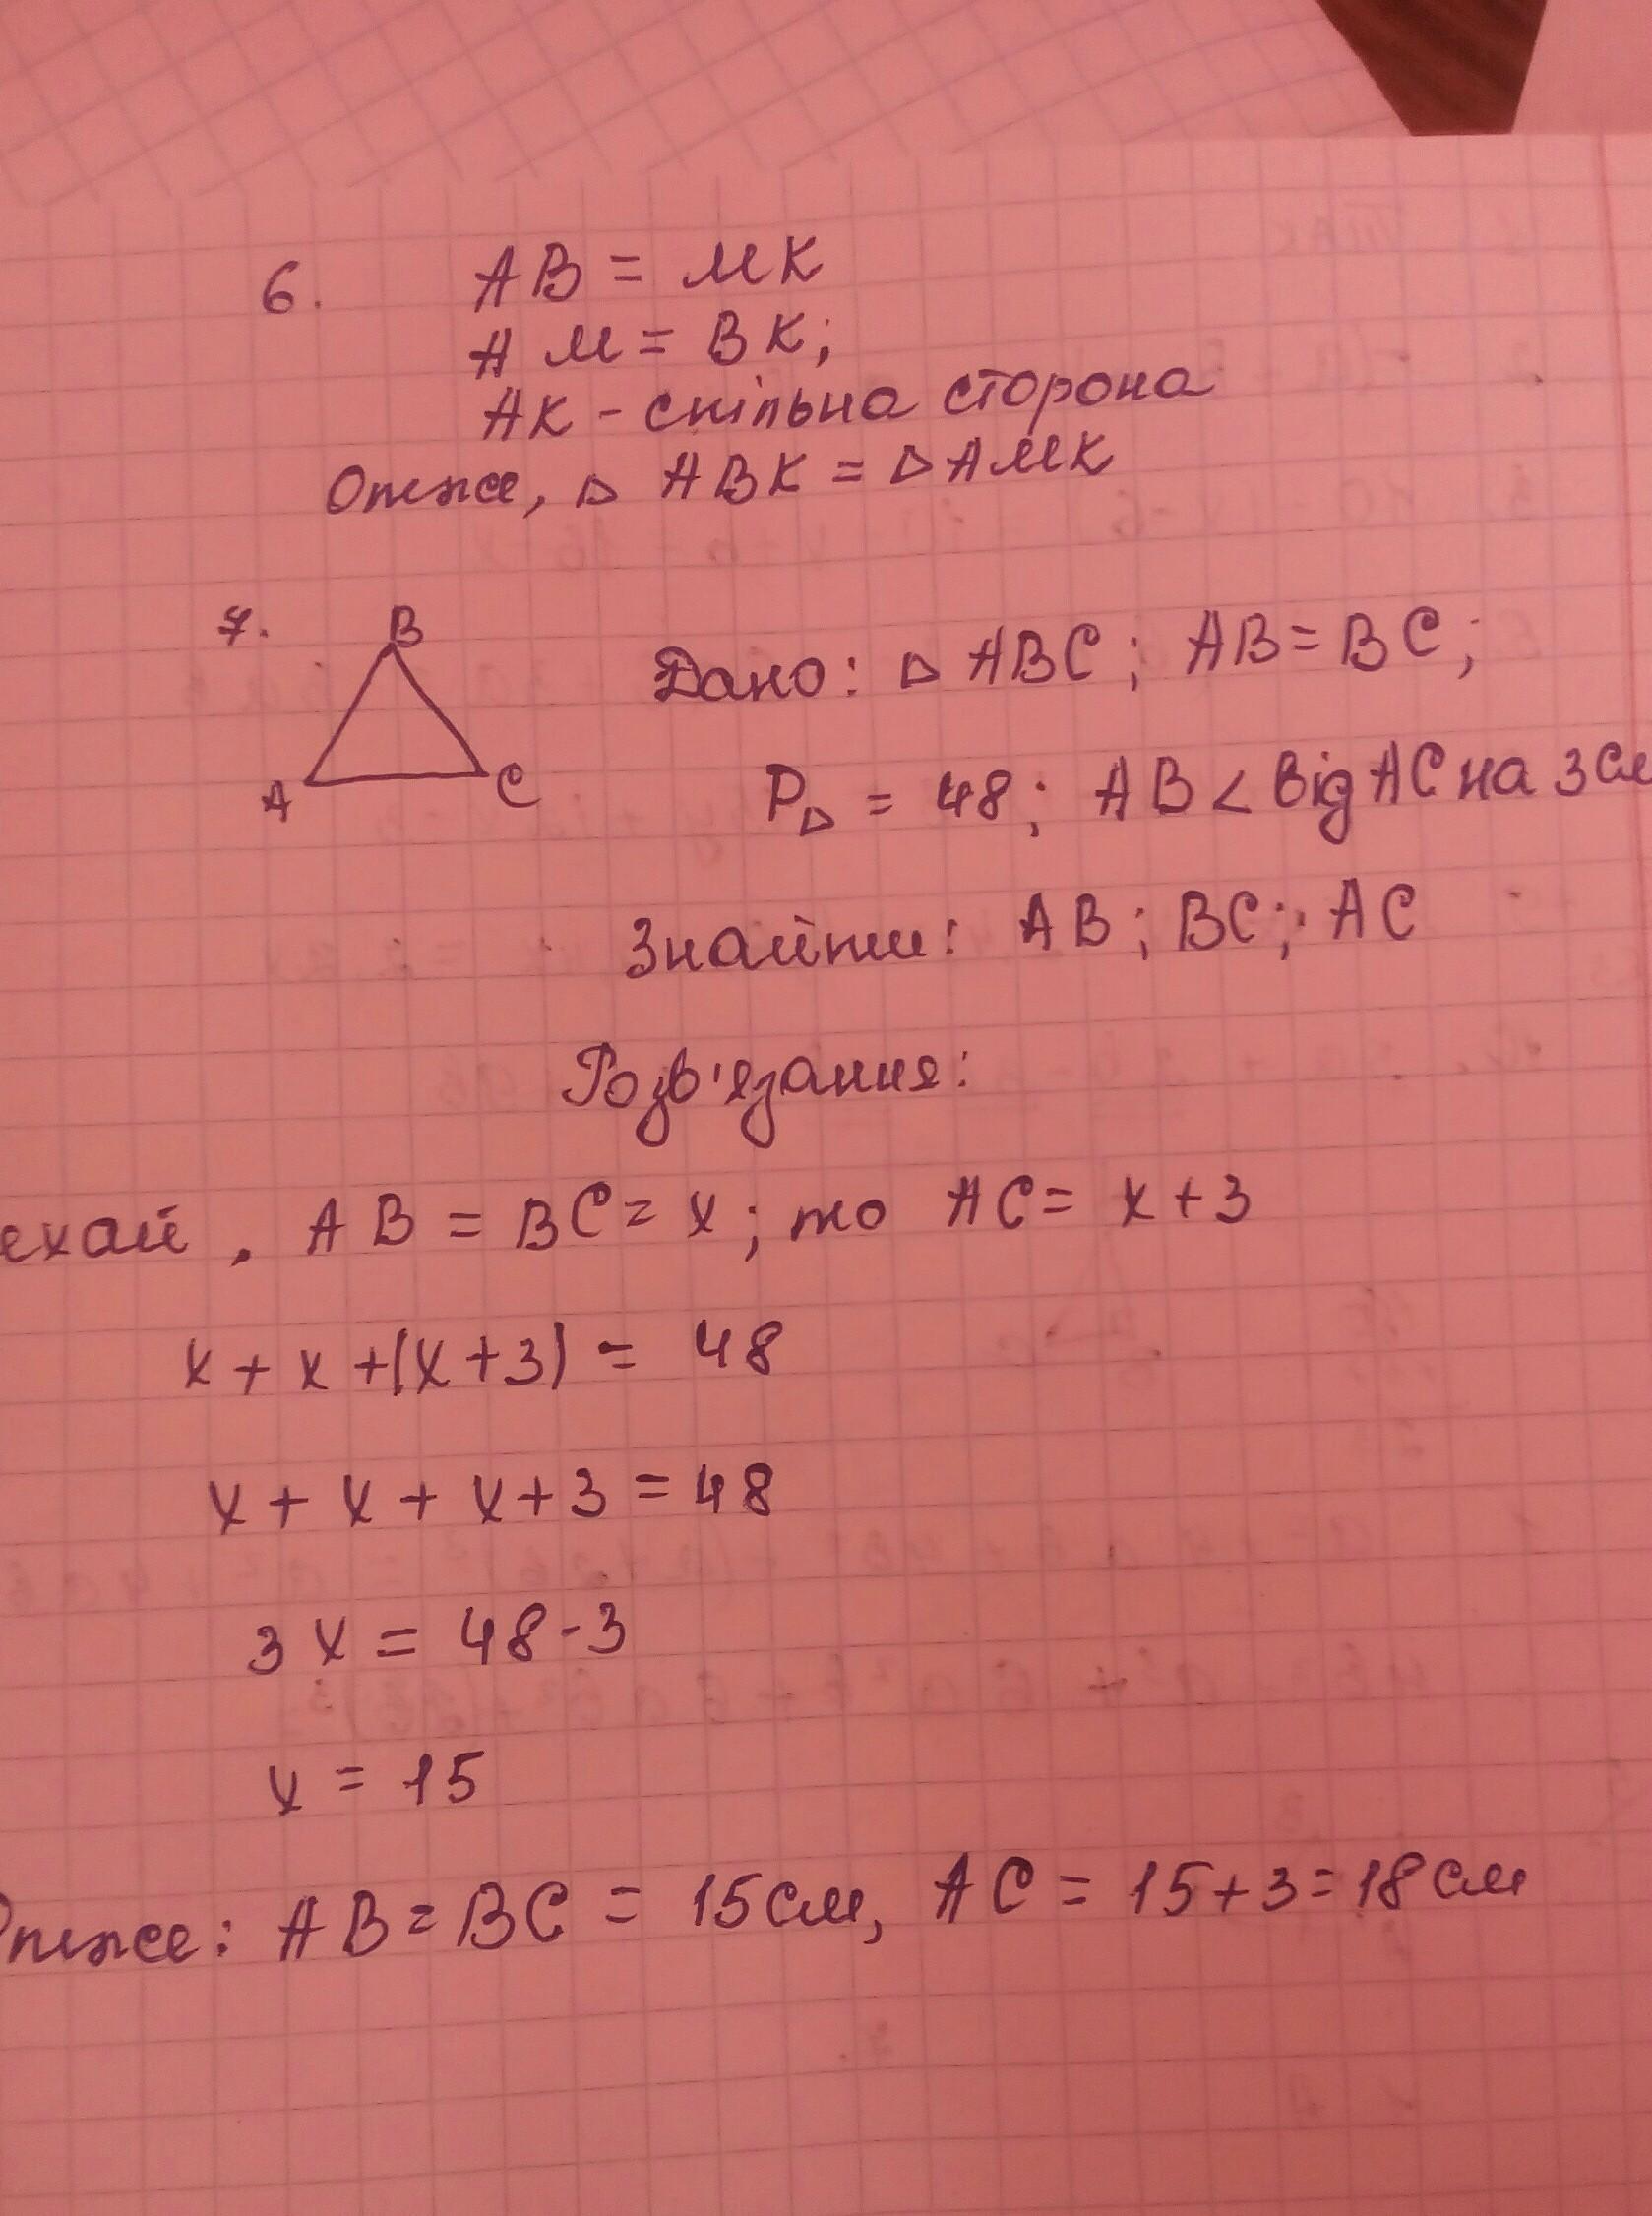 6. AB = MK
AM = BK;
AK - спільна сторона
Отже, △ ABK = △ AMK
7. B
A C
Дано: △ ABC; AB = BC;
P△ = 48; AB < від AC на 3 см
Знайти: AB; BC; AC
Розв'язання:
ехай, AB = BC = x; то AC = x + 3
x + x + (x + 3) = 48
x + x + x + 3 = 48
3x = 48 - 3
x = 15
Отже: AB = BC = 15 см, AC = 15 + 3 = 18 см